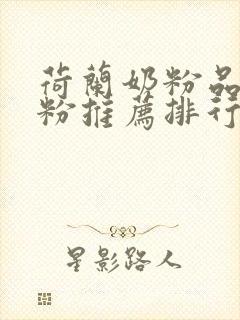 荷蘭奶粉品
粉推薦排行
星影路人